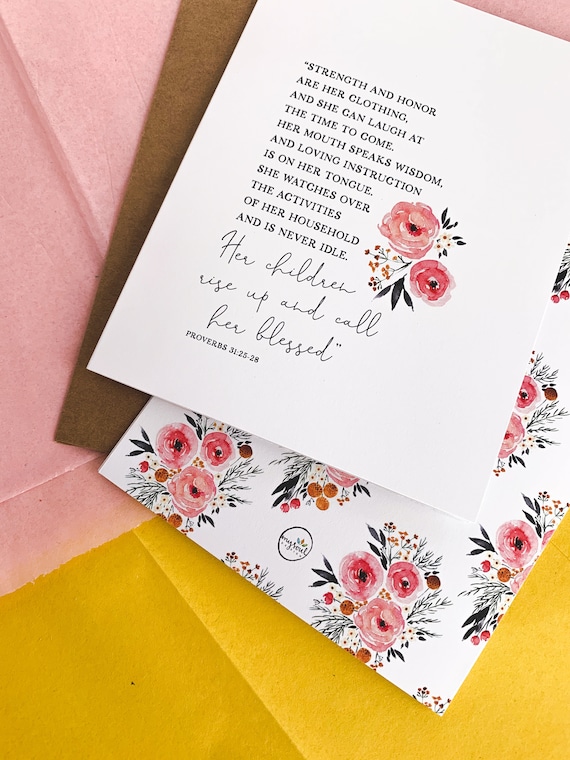 "STRENGTH AND HONOR
ARE HER CLOTHING,
AND SHE CAN LAUGH AT
THE TIME TO COME.
HER MOUTH SPEAKS WISDOM,
AND LOVING INSTRUCTION
IS ON HER TONGUE.
SHE WATCHES OVER
THE ACTIVITIES
OF HER HOUSEHOLD
AND IS NEVER IDLE.
Her children
rise up and call
her blessed"
PROVERBS 31:25-28